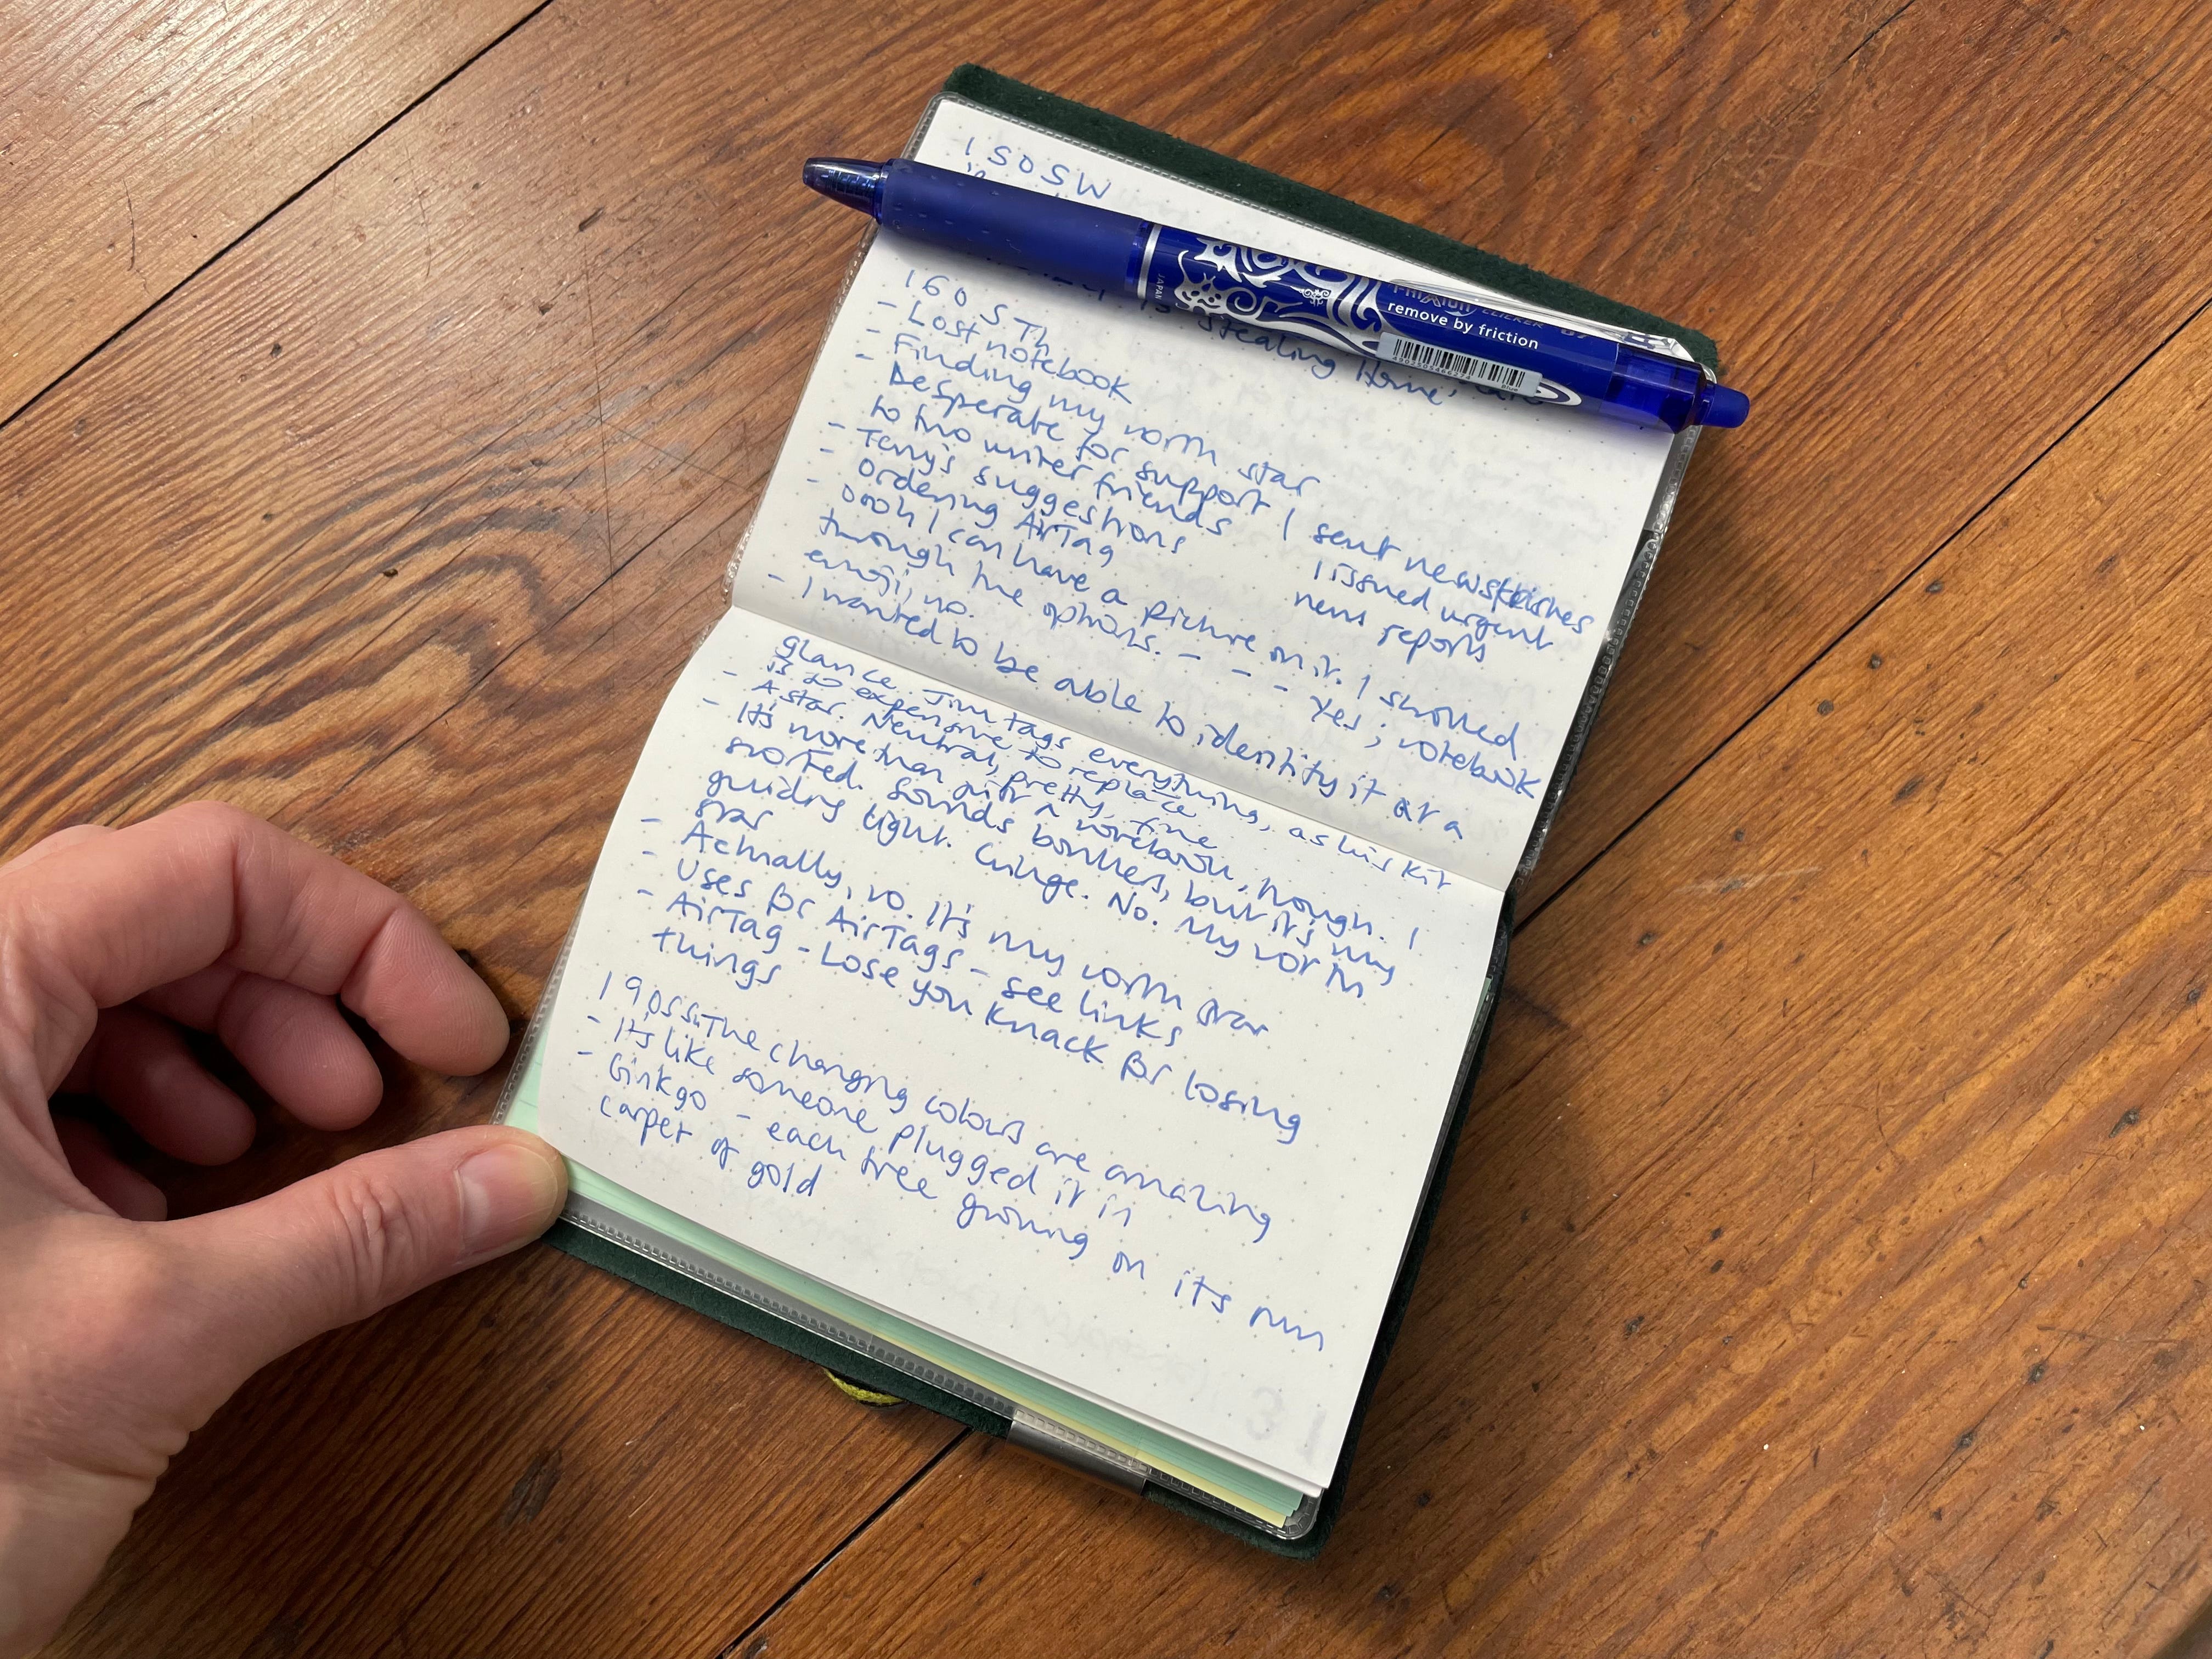 150SW
FRIXION CLICKER 07
remove by friction
JAPAN
Blue
Stealing Home,
160 STh
- Lost notebook
- Finding my north star
- Desperate for support I sent newsflashes
to two writer friends I issued urgent
news reports
- Terry's suggestions
- Ordering AirTag
- Oooh I can have a picture on it. I scrolled
through the options. - - - Yes; notebook
emoji, no.
- I wanted to be able to identify it at a
glance. Jim tags everything, as his kit
is so expensive to replace
- A star. Neutral, pretty, fine
- It's more than a notebook, though. I
snorted. Sounds bonkers, but it's my
guiding light. Cringe. No. My north
star
- Actually, no. It's my north star
- Uses for AirTags - see links
- AirTag - Lose your knack for losing
things
190SSu The changing colours are amazing
- It's like someone plugged it in
- Ginkgo - each tree growing on its own
carpet of gold